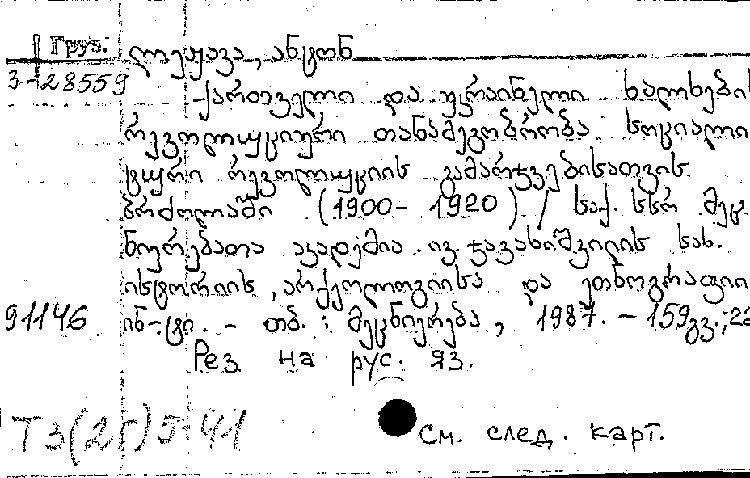 Груз. ლეჟავა, ანტონ
3-28559
ქართველი და უკრაინელი ხალხების
რევოლუციური თანამეგობრობა სოციალის
ტური რევოლუციის გამარჯვებისათვის
ბრძოლაში (1900- 1920) / საქ. სსრ მეც
ნიერებათა აკადემია ივ. ჯავახიშვილის სახ.
ისტორიის, არქეოლოგიისა და ეთნოგრაფიი
91146 ინ-ტი. - თბ. : მეცნიერება, 1987. - 159გვ.; 22
Рез. на рус. яз.
Т3(2Г)5-41
См. след. карт.